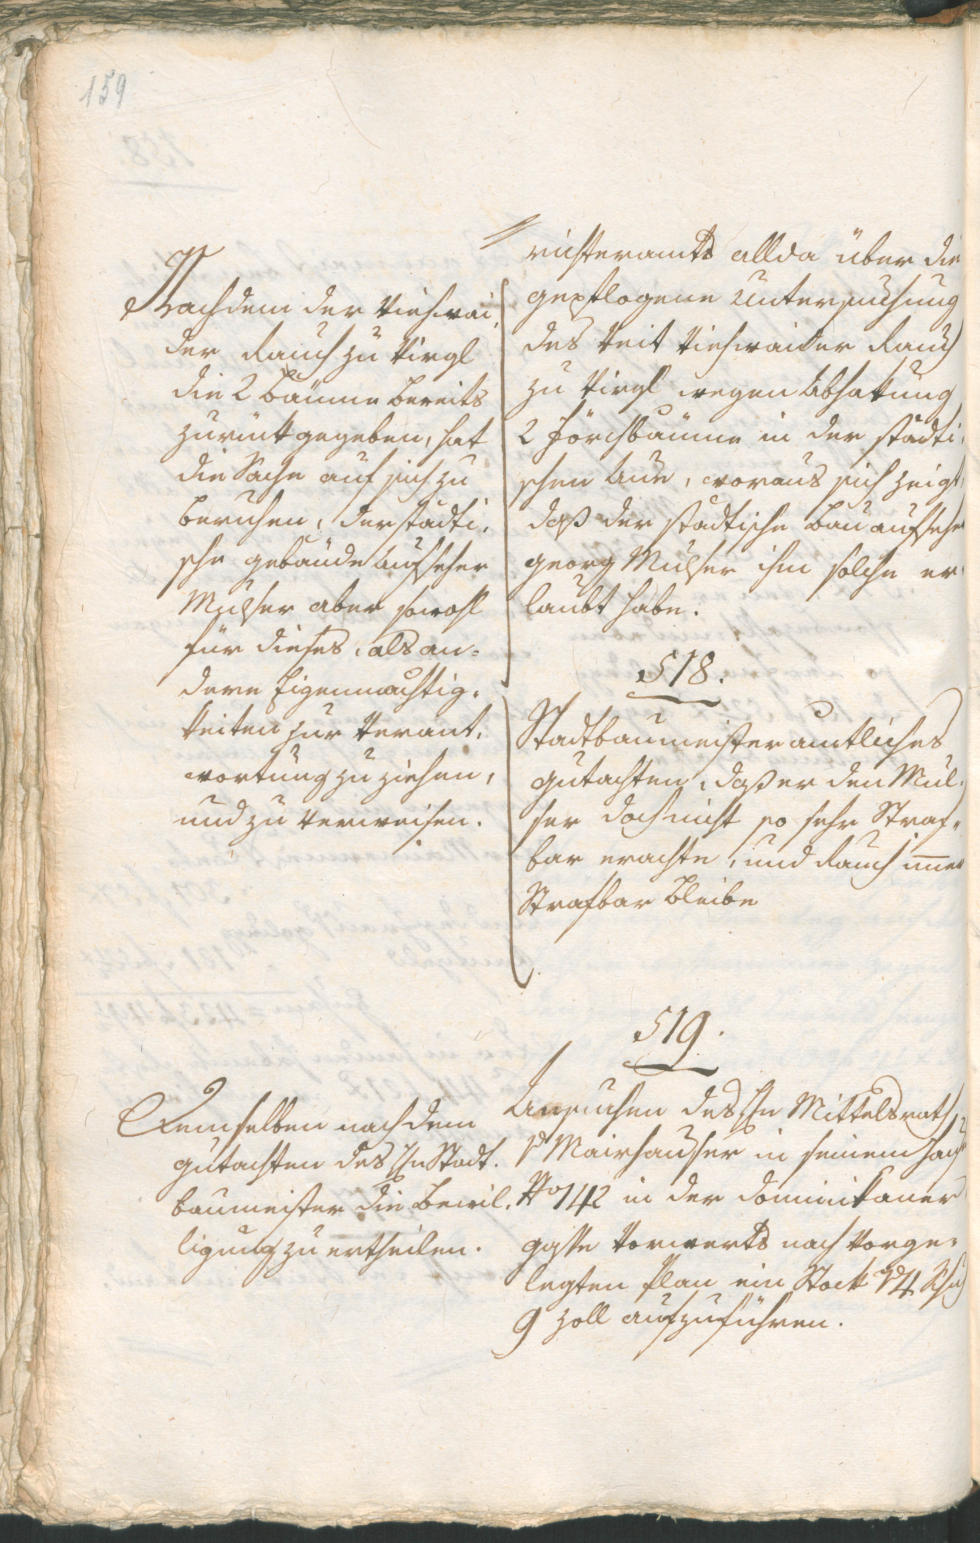 159
Nachdem der Viehwai¬
der Rauch zu Virgl
die 2 Bäume bereits
zurückgegeben, hat
die Sache auf sich zu
beruhen, der städti¬
sche Gebäude Aufseher
Mulser aber sowohl
für dieses, als an¬
dere Eigenmächtig¬
keiten zur Verant¬
wortung zu ziehen,
und zu verweisen.
richteramts allda über die
gepflogene Untersuchung
des Veit Viehwaider Rauch
zu Virgl wegen Abhakung
2 Förchbäume in der städti¬
schen Aue, woraus sich zeigt,
daß der städtische Bauaufseher
Georg Mulser ihm solche er¬
laubt habe.
518.
Stadtbaumeisteramtliches
Gutachten, daß er den Mul¬
ser doch nicht so sehr Straf¬
bar erachte, und Rauch immer
Strafbar bleibe
519.
Demselben nach dem
Gutachten des Hn Stadt¬
baumeister die Bewil¬
ligung zu ertheilen.
Ansuchen des Hn Mittelsrath
v Mairhauser in seinem Haus
No 142 in der Dominikaner
gasse vorwerts nach vorge¬
legten Plan ein Stock 14 Schuh
9 Zoll aufzuführen.